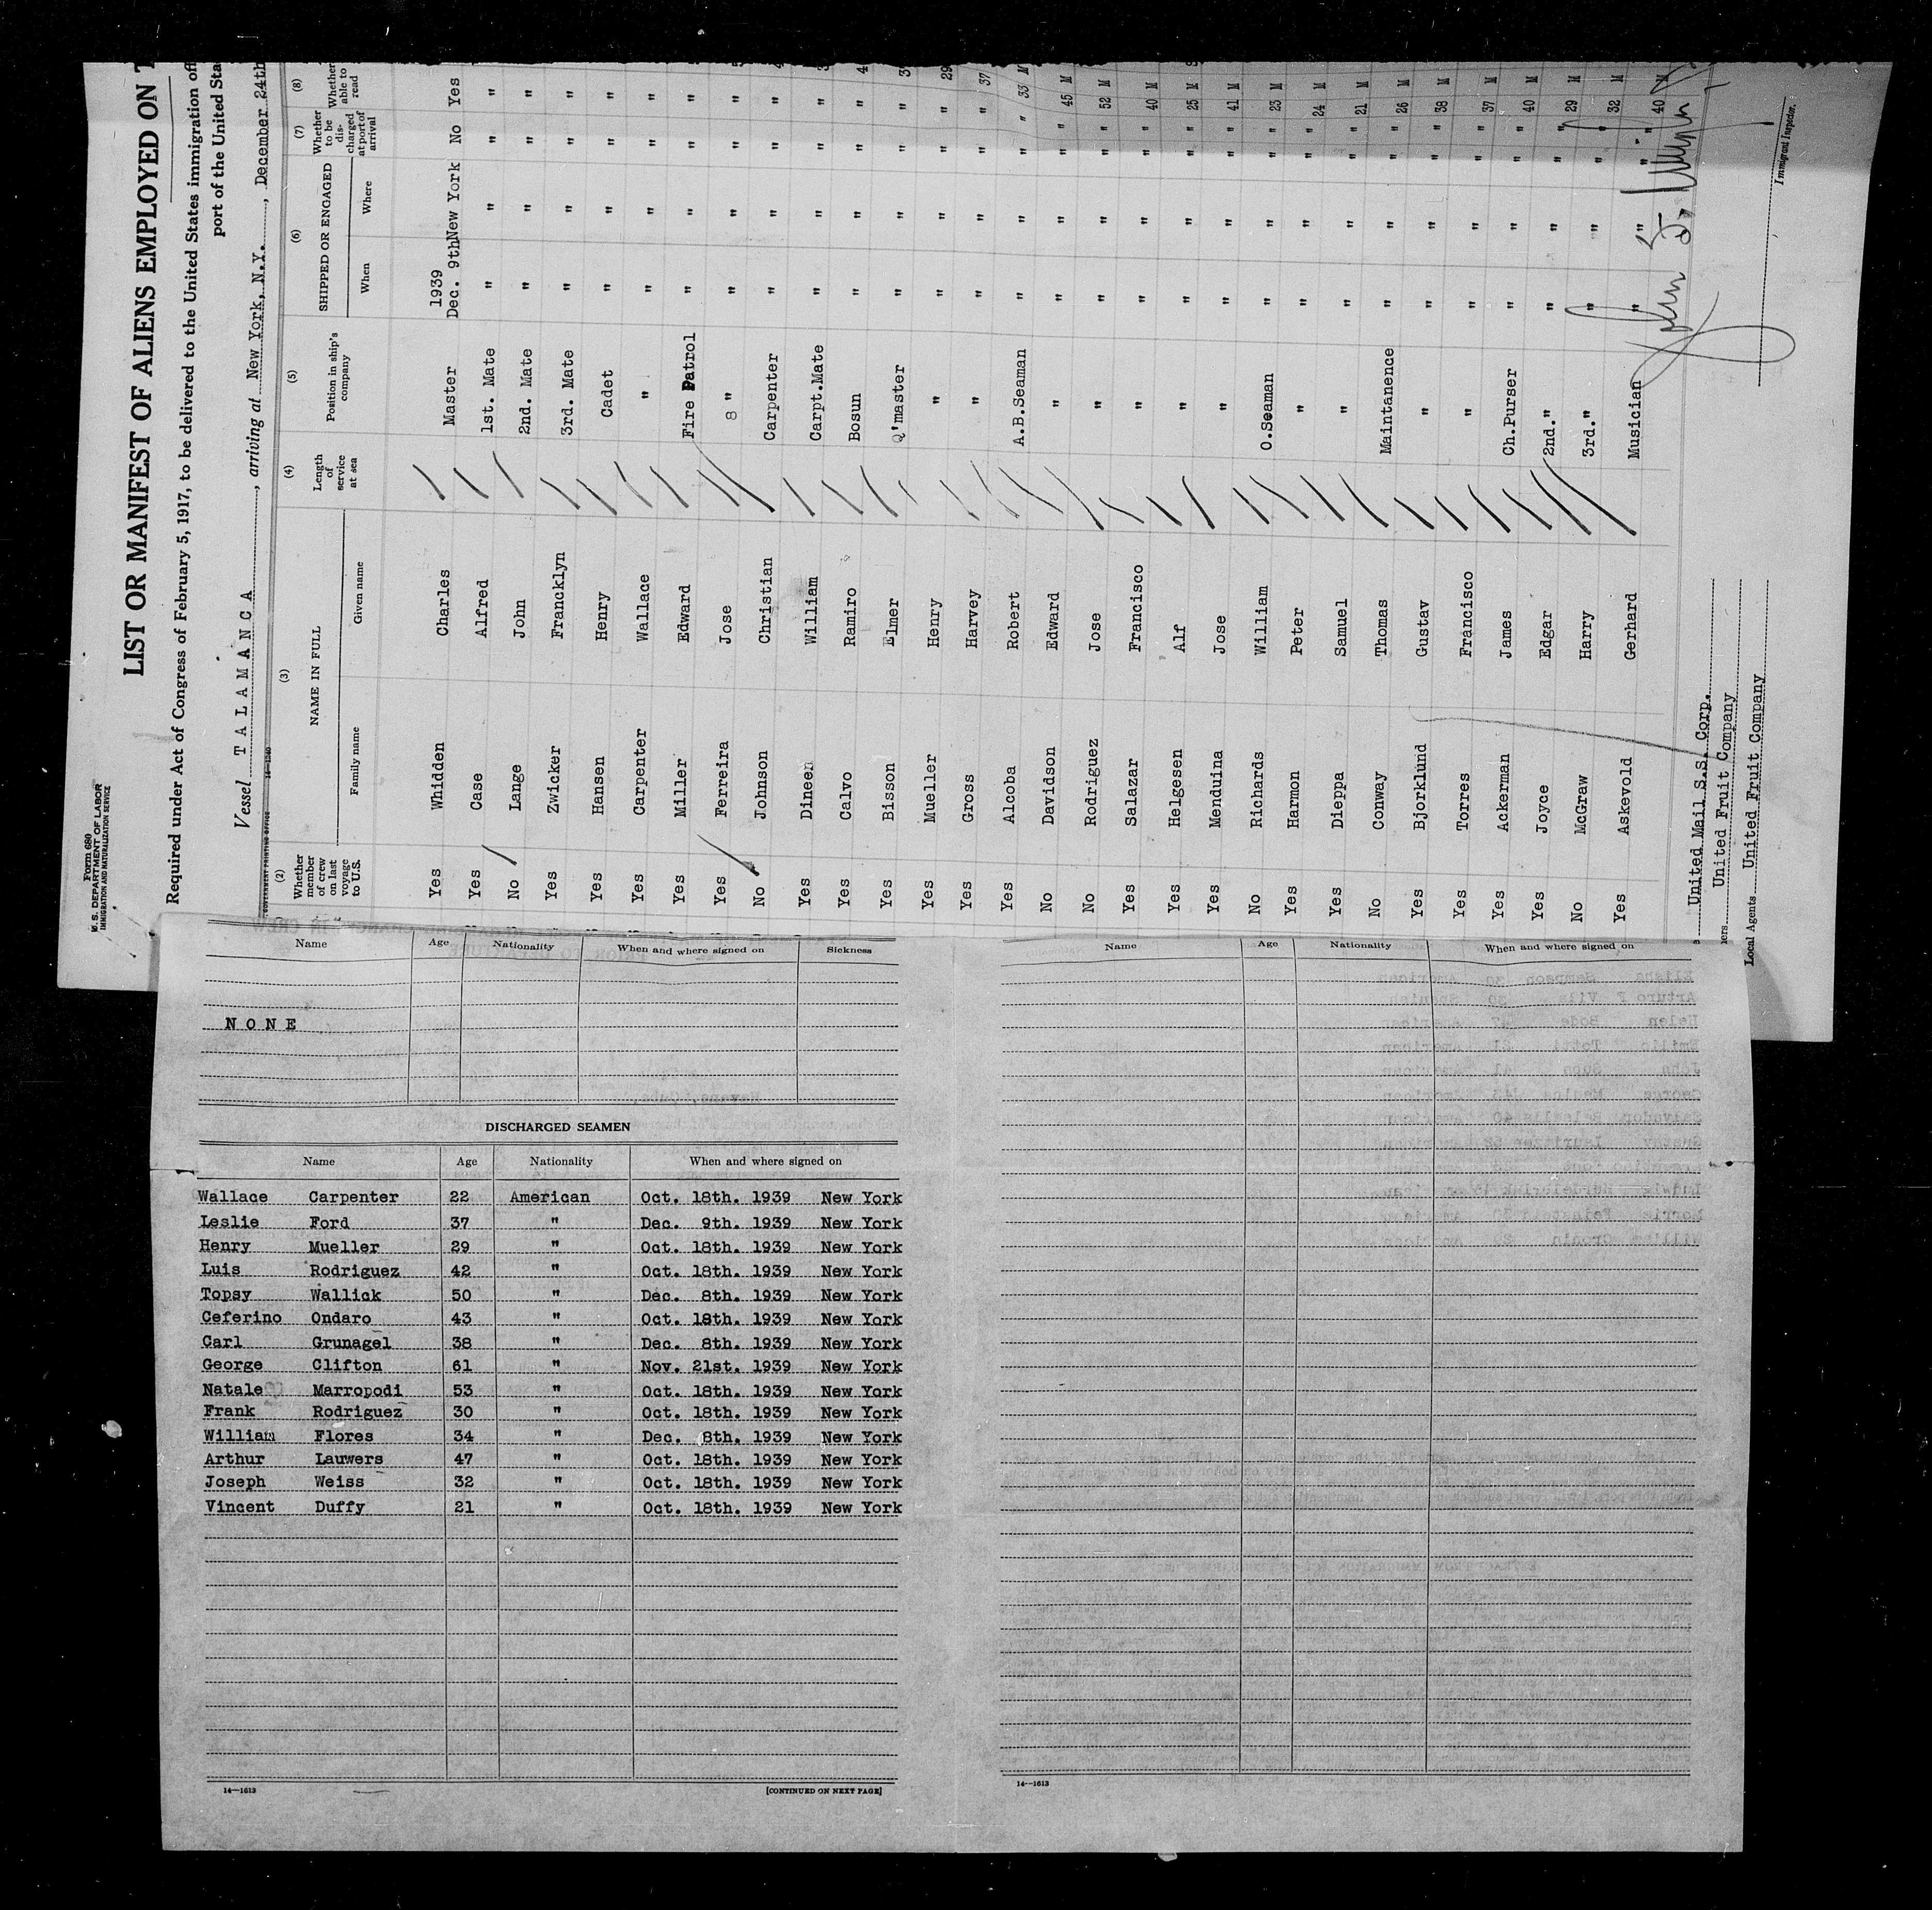 Form 680
U. S. DEPARTMENT OF LABOR
IMMIGRATION AND NATURALIZATION SERVICE
LIST OR MANIFEST OF ALIENS EMPLOYED ON
Required under Act of Congress of February 5, 1917, to be delivered to the United States immigration
port of the United
Vessel TALAMANCA, arriving at New York, N.Y., December 24th
(2) (3) (4) (5) (6) (7) (8)
Whether member of crew on last voyage to U.S. NAME IN FULL Length of service at sea Position in ship's company SHIPPED OR ENGAGED Whether to be discharged at port of arrival Whether able to read
Family name Given name When Where
1939
Yes Whidden Charles Master Dec. 9th New York No Yes
Yes Case Alfred 1st. Mate " " " "
No Lange John 2nd. Mate " " " "
Yes Zwicker Francklyn 3rd. Mate " " " "
Yes Hansen Henry Cadet " " " "
Yes Carpenter Wallace " " " " "
Yes Miller Edward Fire Patrol " " " "
Yes Ferreira Jose 8 " " " " "
No Johnson Christian Carpenter " " " "
Yes Dineen William Carpt.Mate " " " "
Yes Calvo Ramiro Bosun " " " "
Yes Bisson Elmer Q'master " " " "
Yes Mueller Henry " " " " " 29
Yes Gross Harvey " " " " " 37
Yes Alcoba Robert A.B.Seaman " " " " 33 M
No Davidson Edward " " " " " 45 M
No Rodriguez Jose " " " " " 52 M
Yes Salazar Francisco " " " " " 40 M
Yes Helgesen Alf " " " " " 25 M
Yes Menduina Jose " " " " " 41 M
No Richards William O.Seaman " " " " 23 M
Yes Harmon Peter " " " " " 24 M
Yes Dieppa Samuel " " " " " 21 M
No Conway Thomas Maintanence " " " " 26 M
Yes Bjorklund Gustav " " " " " 38 M
Yes Torres Francisco " " " " " 37 M
Yes Ackerman James Ch.Purser " " " " 40 M
Yes Joyce Edgar 2nd." " " " " 29 M
No McGraw Harry 3rd." " " " " 32 M
Yes Askevold Gerhard Musician " " " " 40 M
United Mail S.S. Corp.
United Fruit Company
Local Agents United Fruit Company
Immigrant Inspector.
Name Age Nationality When and where signed on Sickness
NONE
DISCHARGED SEAMEN
Name Age Nationality When and where signed on
Wallace Carpenter 22 American Oct. 18th. 1939 New York
Leslie Ford 37 " Dec. 9th. 1939 New York
Henry Mueller 29 " Oct. 18th. 1939 New York
Luis Rodriguez 42 " Oct. 18th. 1939 New York
Topsy Wallick 50 " Dec. 8th. 1939 New York
Ceferino Ondaro 43 " Oct. 18th. 1939 New York
Carl Grunagel 38 " Dec. 8th. 1939 New York
George Clifton 61 " Nov. 21st. 1939 New York
Natale Marropodi 53 " Oct. 18th. 1939 New York
Frank Rodriguez 30 " Oct. 18th. 1939 New York
William Flores 34 " Dec. 8th. 1939 New York
Arthur Lauwers 47 " Oct. 18th. 1939 New York
Joseph Weiss 32 " Oct. 18th. 1939 New York
Vincent Duffy 21 " Oct. 18th. 1939 New York
14—1613 [CONTINUED ON NEXT PAGE]
Name Age Nationality When and where signed on
14—1613